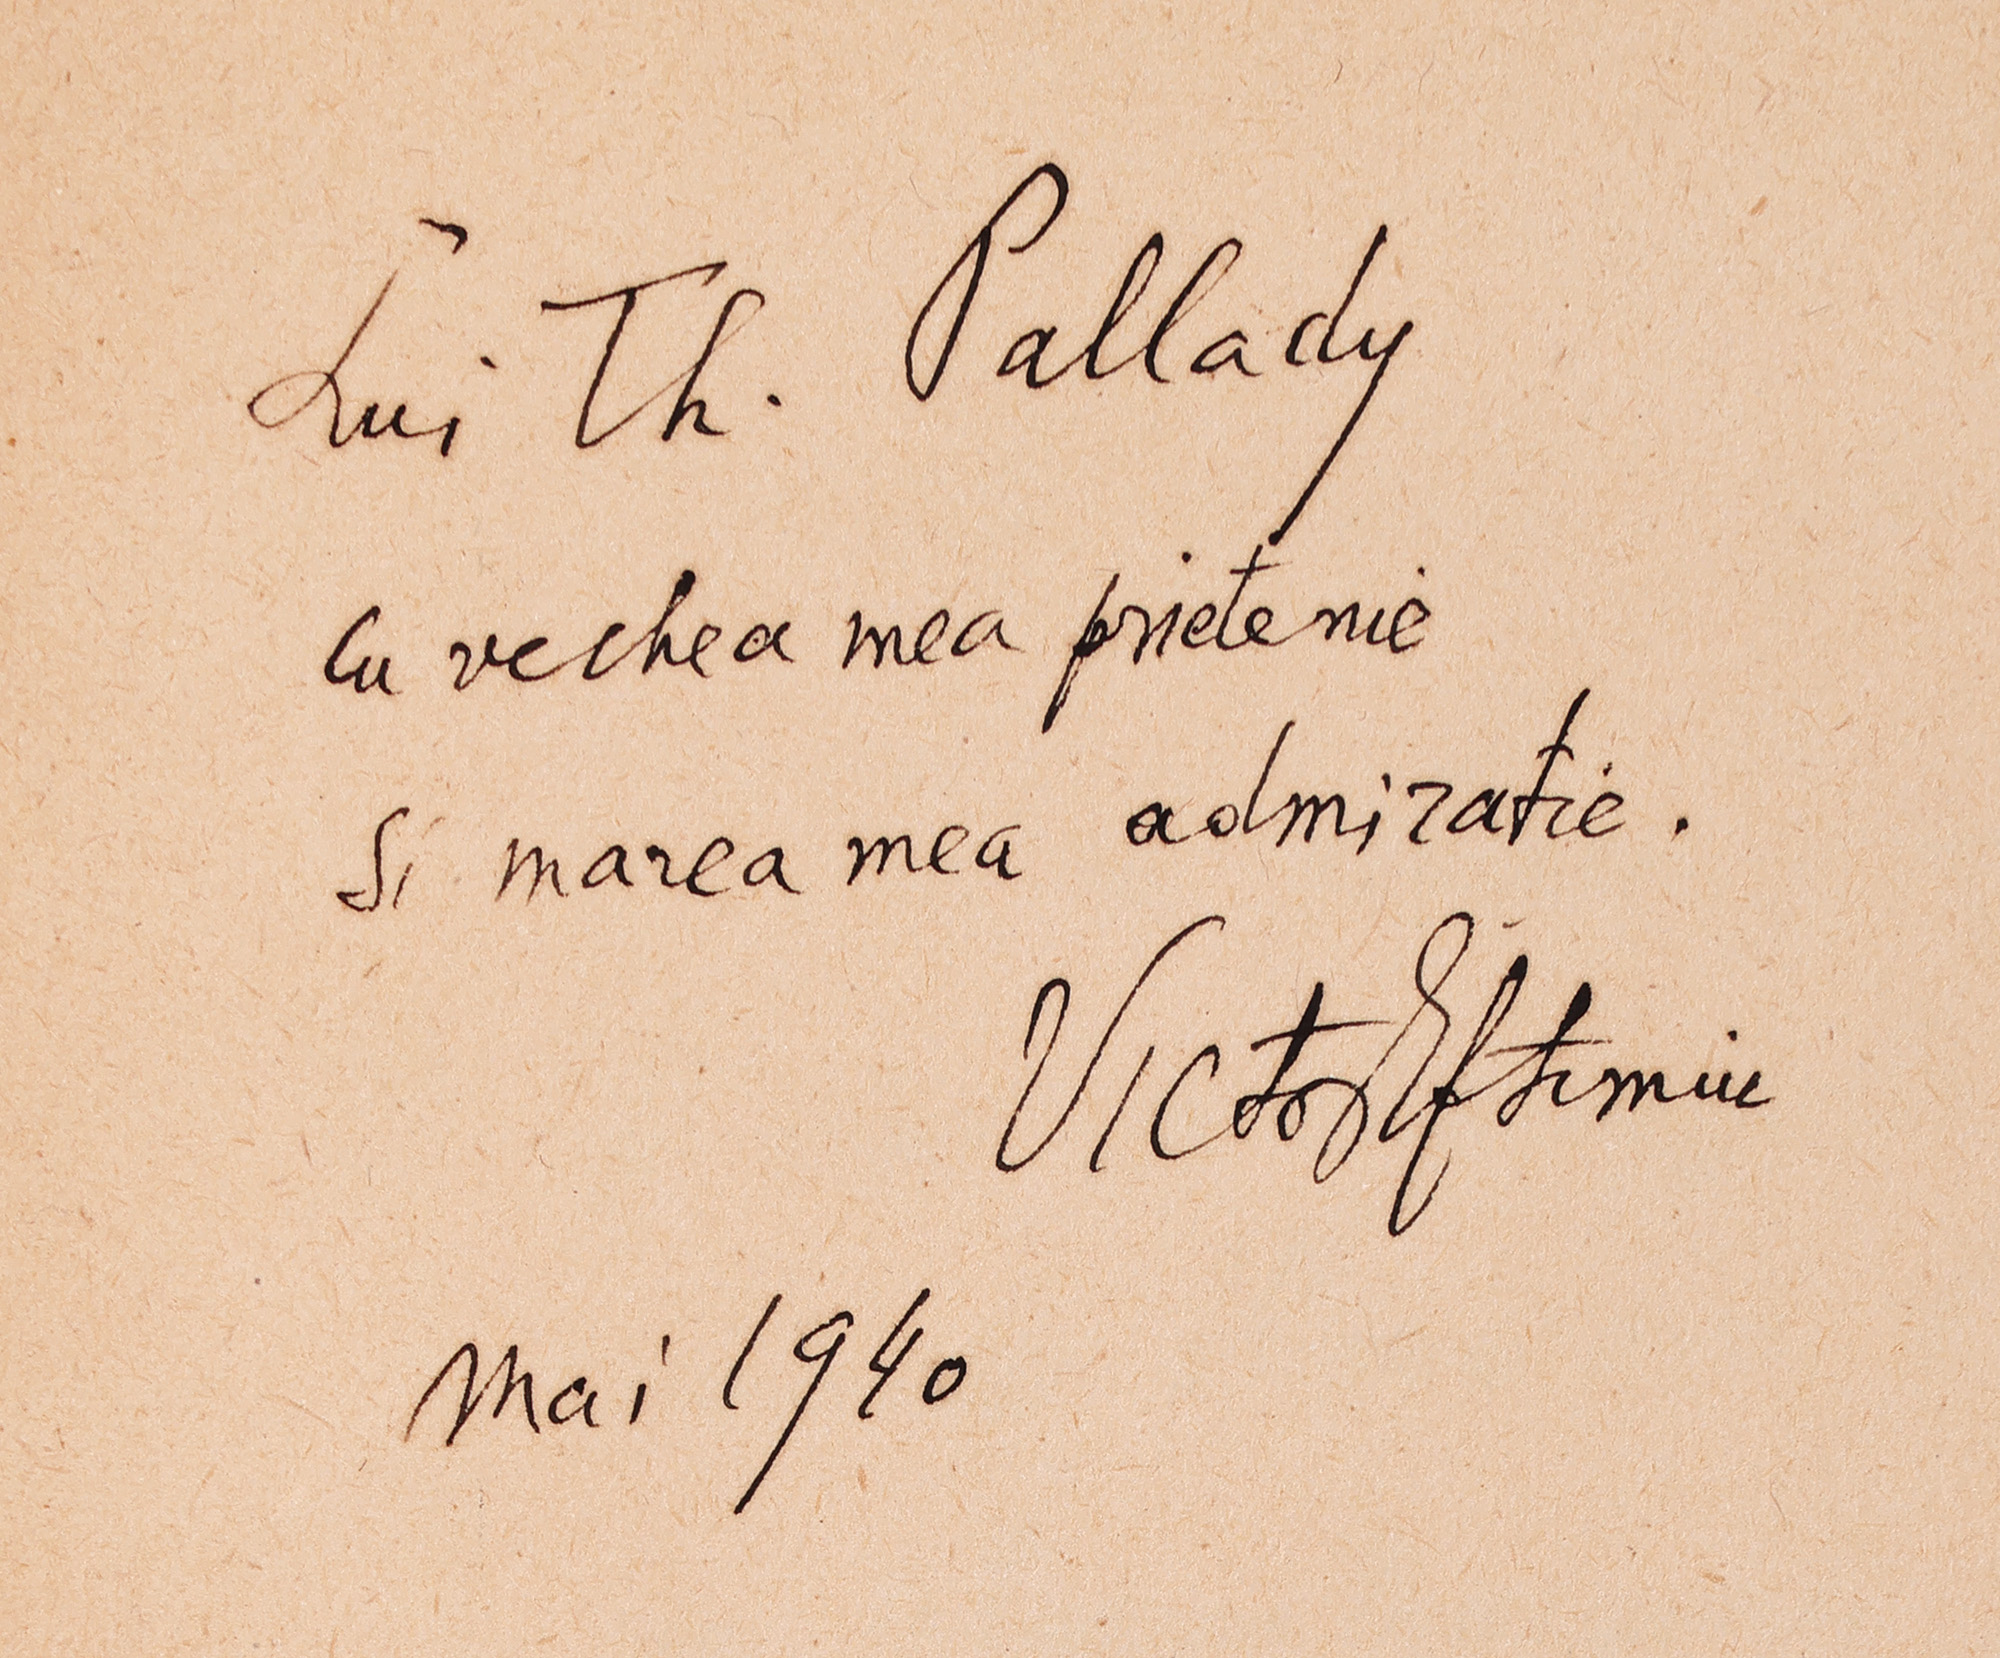 Lui Th. Pallady
cu vechea mea prietenie
si marea mea admiratie.
Victor Eftimiu
Mai 1940